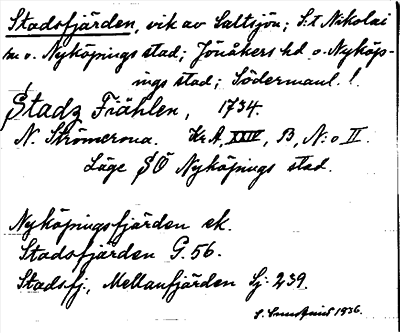 Stadsfjärden, vik av Saltsjön; S:t Nikolai
m. o. Nyköpings stad; Jönåkers hd o. Nyköp-
ings stad; Södermanl. l.
Stadz Fiählen, 1734.
N. Strömcrona. Kr A, XXIV, B, N:o II.
Läge SÖ Nyköpings stad.
Nyköpingsfjärden ek.
Stadsfjärden G. 56.
Stadsfj., Mellanfjärden Sj. 239.
1936.